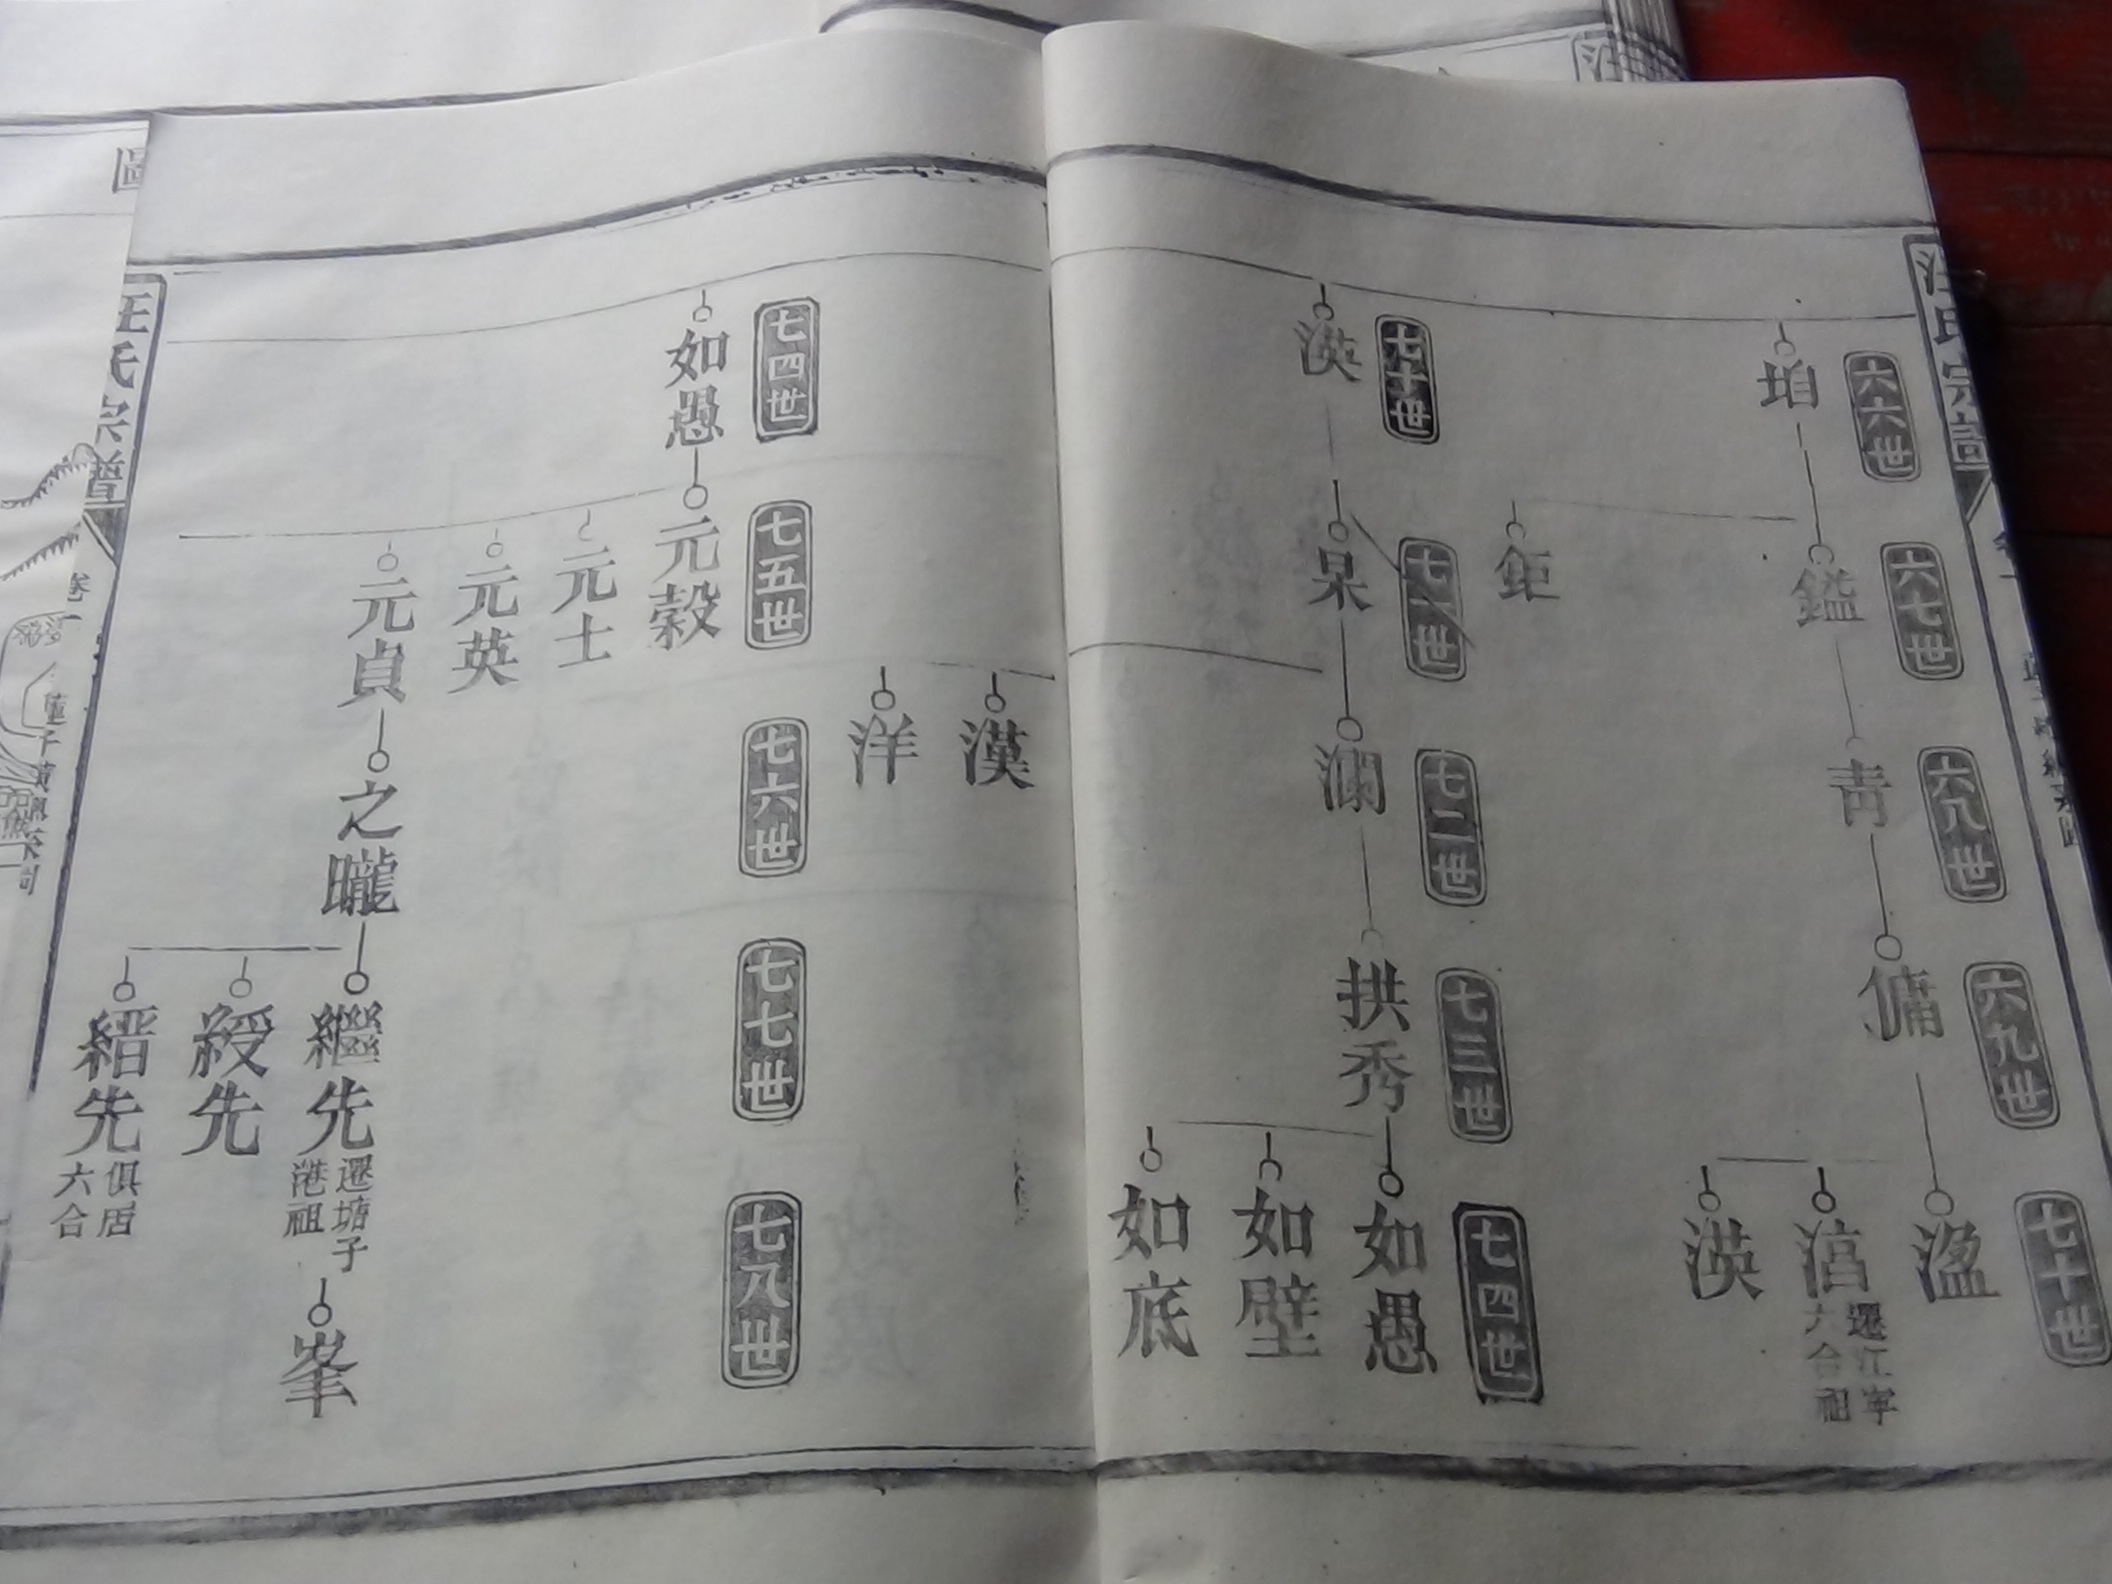 汪氏宗譜
六六世
珀
六七世
鎰
鉅
六八世
靑
六九世
傭
七十世
溋
湻
遷江寧
六合祖
渶
七十世
渶
七一世
杲
七二世
漢
洋
七三世
拱秀
七四世
如愚
如壁
如底
七四世
如愚
七五世
元穀
元士
元英
元貞
七六世
之矓
七七世
繼先
遷塘子
港祖
綬先
縉先
俱居
六合
七八世
峯
汪氏宗譜
卷一
圖